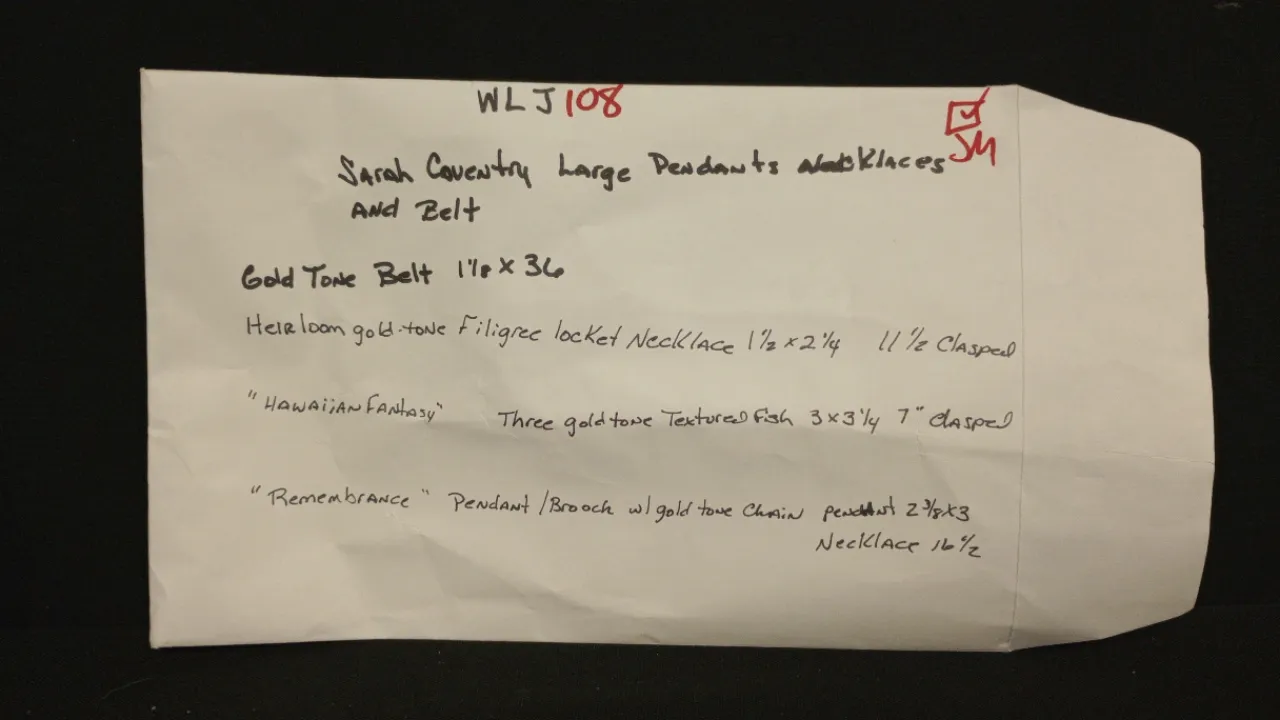 WLJ108
JM
Sarah Coventry Large Pendants Necklaces
and Belt
Gold Tone Belt 1 1/8 x 36
Heirloom gold-tone Filigree locket Necklace 1 1/2 x 2 1/4 11 1/2 Clasped
"Hawaiian Fantasy" Three gold tone Textured Fish 3 x 3 1/4 7" Clasped
"Remembrance" Pendant/Brooch w/ gold tone Chain pendant 2 3/8 x 3
Necklace 16 1/2